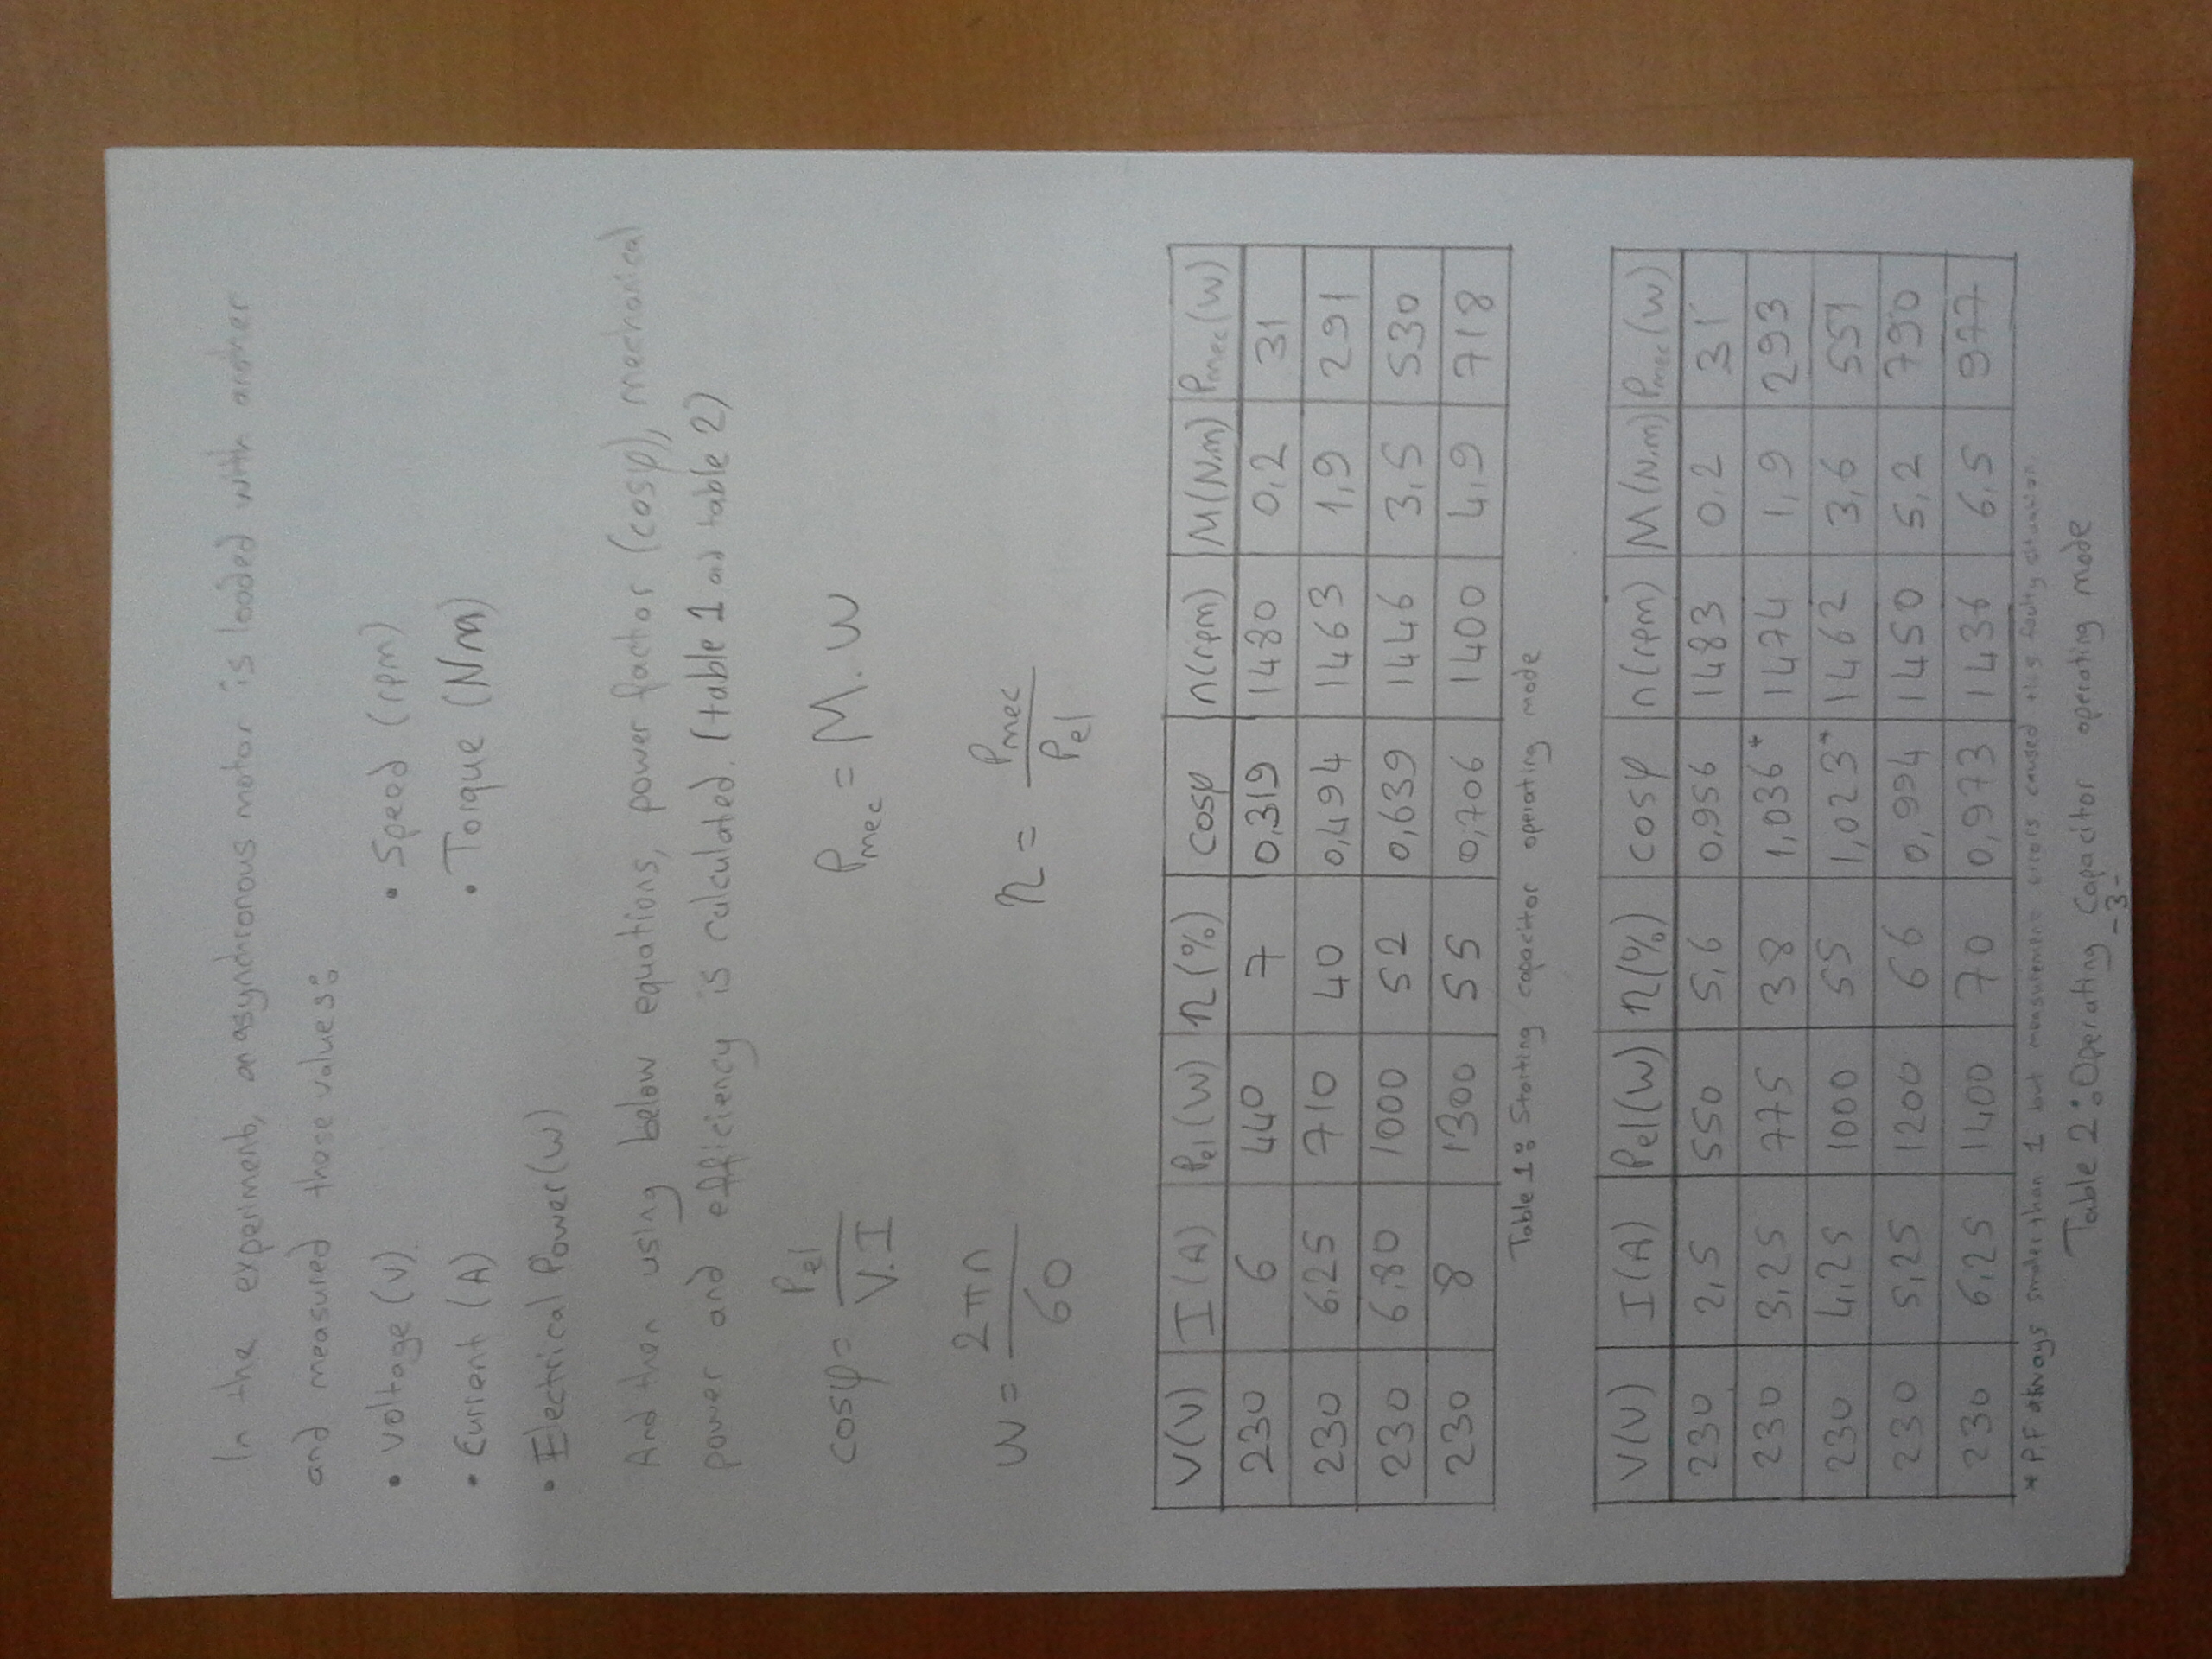 In the experiment, an asynchronous motor is loaded with another
and measured those values:
• Voltage (V) • Speed (rpm)
• Current (A) • Torque (Nm)
• Electrical Power (W)
And then using below equations, power factor (cosφ), mechanical
power and efficiency is calculated. (table 1 and table 2)
cosφ = Pel / V.I Pmec = M.w
w = 2πn / 60 η = Pmec / Pel
V(V) I(A) Pel(W) η(%) cosφ n(rpm) M(N.m) Pmec(W)
230 6 440 7 0,319 1480 0,2 31
230 6,25 710 40 0,494 1463 1,9 291
230 6,80 1000 52 0,639 1446 3,5 530
230 8 1300 55 0,706 1400 4,9 718
Table 1: Starting capacitor operating mode
V(V) I(A) Pel(W) η(%) cosφ n(rpm) M(N.m) Pmec(W)
230 2,5 550 5,6 0,956 1483 0,2 31
230 3,25 775 38 1,036* 1474 1,9 293
230 4,25 1000 55 1,023* 1462 3,6 551
230 5,25 1200 66 0,994 1450 5,2 790
230 6,25 1400 70 0,973 1436 6,5 977
* P.F always smaller than 1 but measurement errors caused this faulty situation
Table 2: Operating capacitor operating mode
-3-